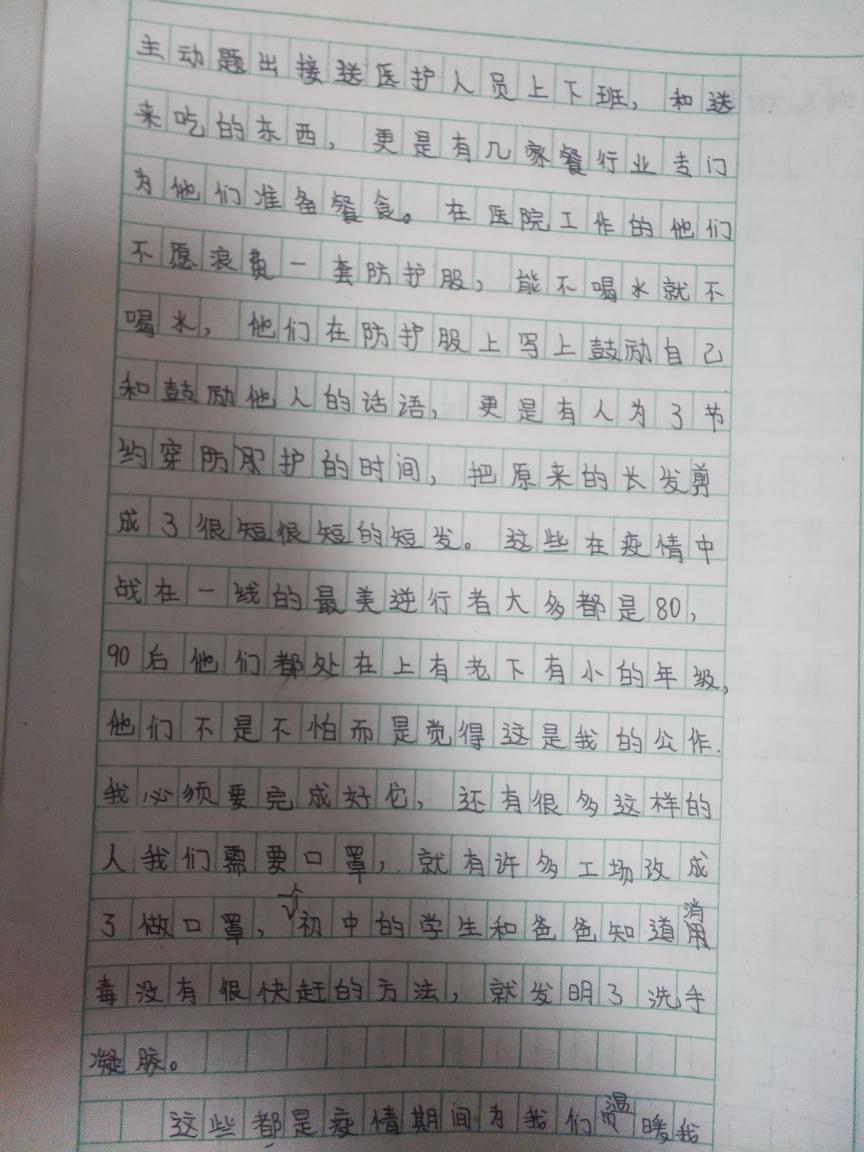 主动题出接送医护人员上下班，和送
来吃的东西，更是有几家餐行业专门
为他们准备餐食。在医院工作的他们
不愿浪费一套防护服，能不喝水就不
喝水，他们在防护服上写上鼓励自己
和鼓励他人的话语，更是有人为了节
约穿防护的时间，把原来的长发剪
成了很短很短的短发。这些在疫情中
战在一线的最美逆行者大多都是80，
90后他们都处在上有老下有小的年级，
他们不是不怕而是觉得这是我的公作.
我必须要完成好它，还有很多这样的
人我们需要口罩，就有许多工场改成
了做口罩，个初中的学生和爸爸知道消
毒没有很快赶的方法，就发明了洗手
凝胶。
这些都是疫情期间为我们温暖我